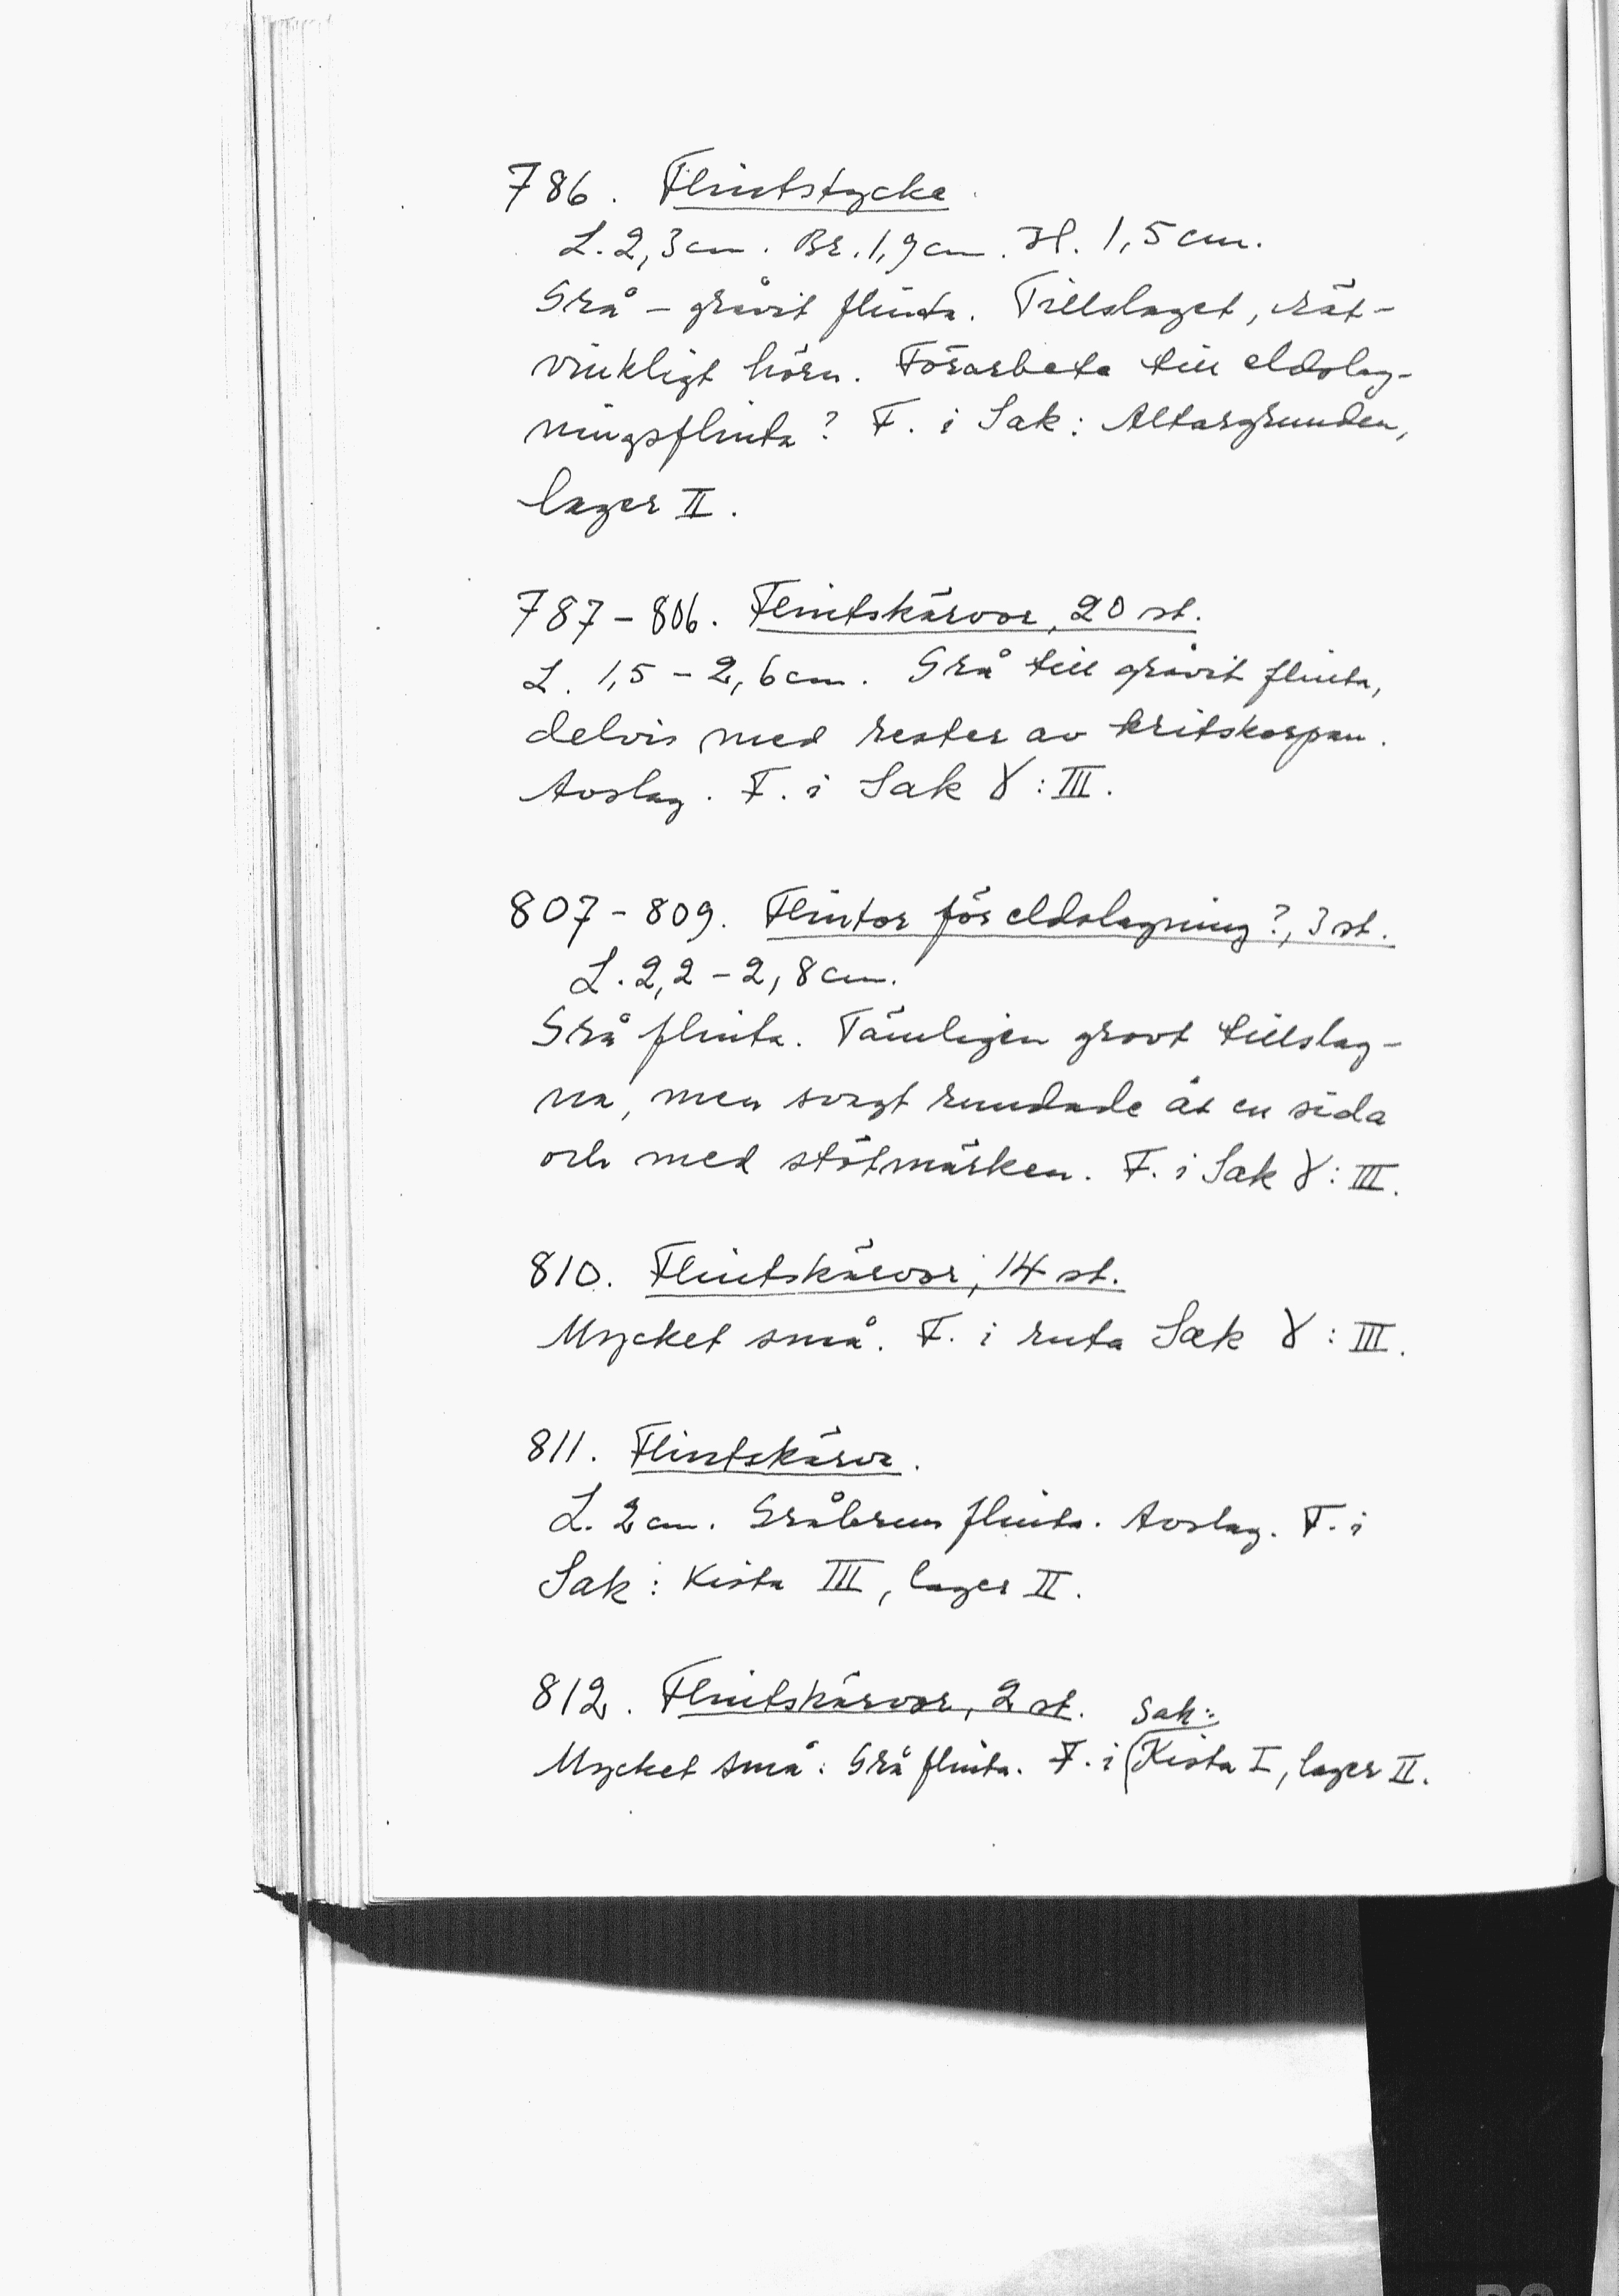 786. Flintstycke.
L. 2,3 cm. Br. 1,9 cm. H. 1,5 cm.
Grå – gråvit flinta. Tillslaget, rät-
vinkligt hörn. Förarbete till eldslag-
ningsflinta? F. i Sak: Altargrunden,
lager II.
787–806. Flintskärvor, 20 st.
L. 1,5 – 2,6 cm. Grå till gråvit flinta,
delvis med rester av kritskorpan.
Avslag. F. i Sak γ : III.
807–809. Flintor för eldslagning?, 3 st.
L. 2,2 – 2,8 cm.
Grå flinta. Tämligen grovt tillslag-
na, men svagt rundade åt en sida
och med stötmärken. F. i Sak γ : III.
810. Flintskärvor, 14 st.
Mycket små. F. i ruta Sak γ : III.
811. Flintskärva.
L. 2 cm. Gråbrun flinta. Avslag. F. i
Sak: Kista III, lager II.
812. Flintskärvor, 2 st.
Sak:
Mycket små. Grå flinta. F. i Kista I, lager II.